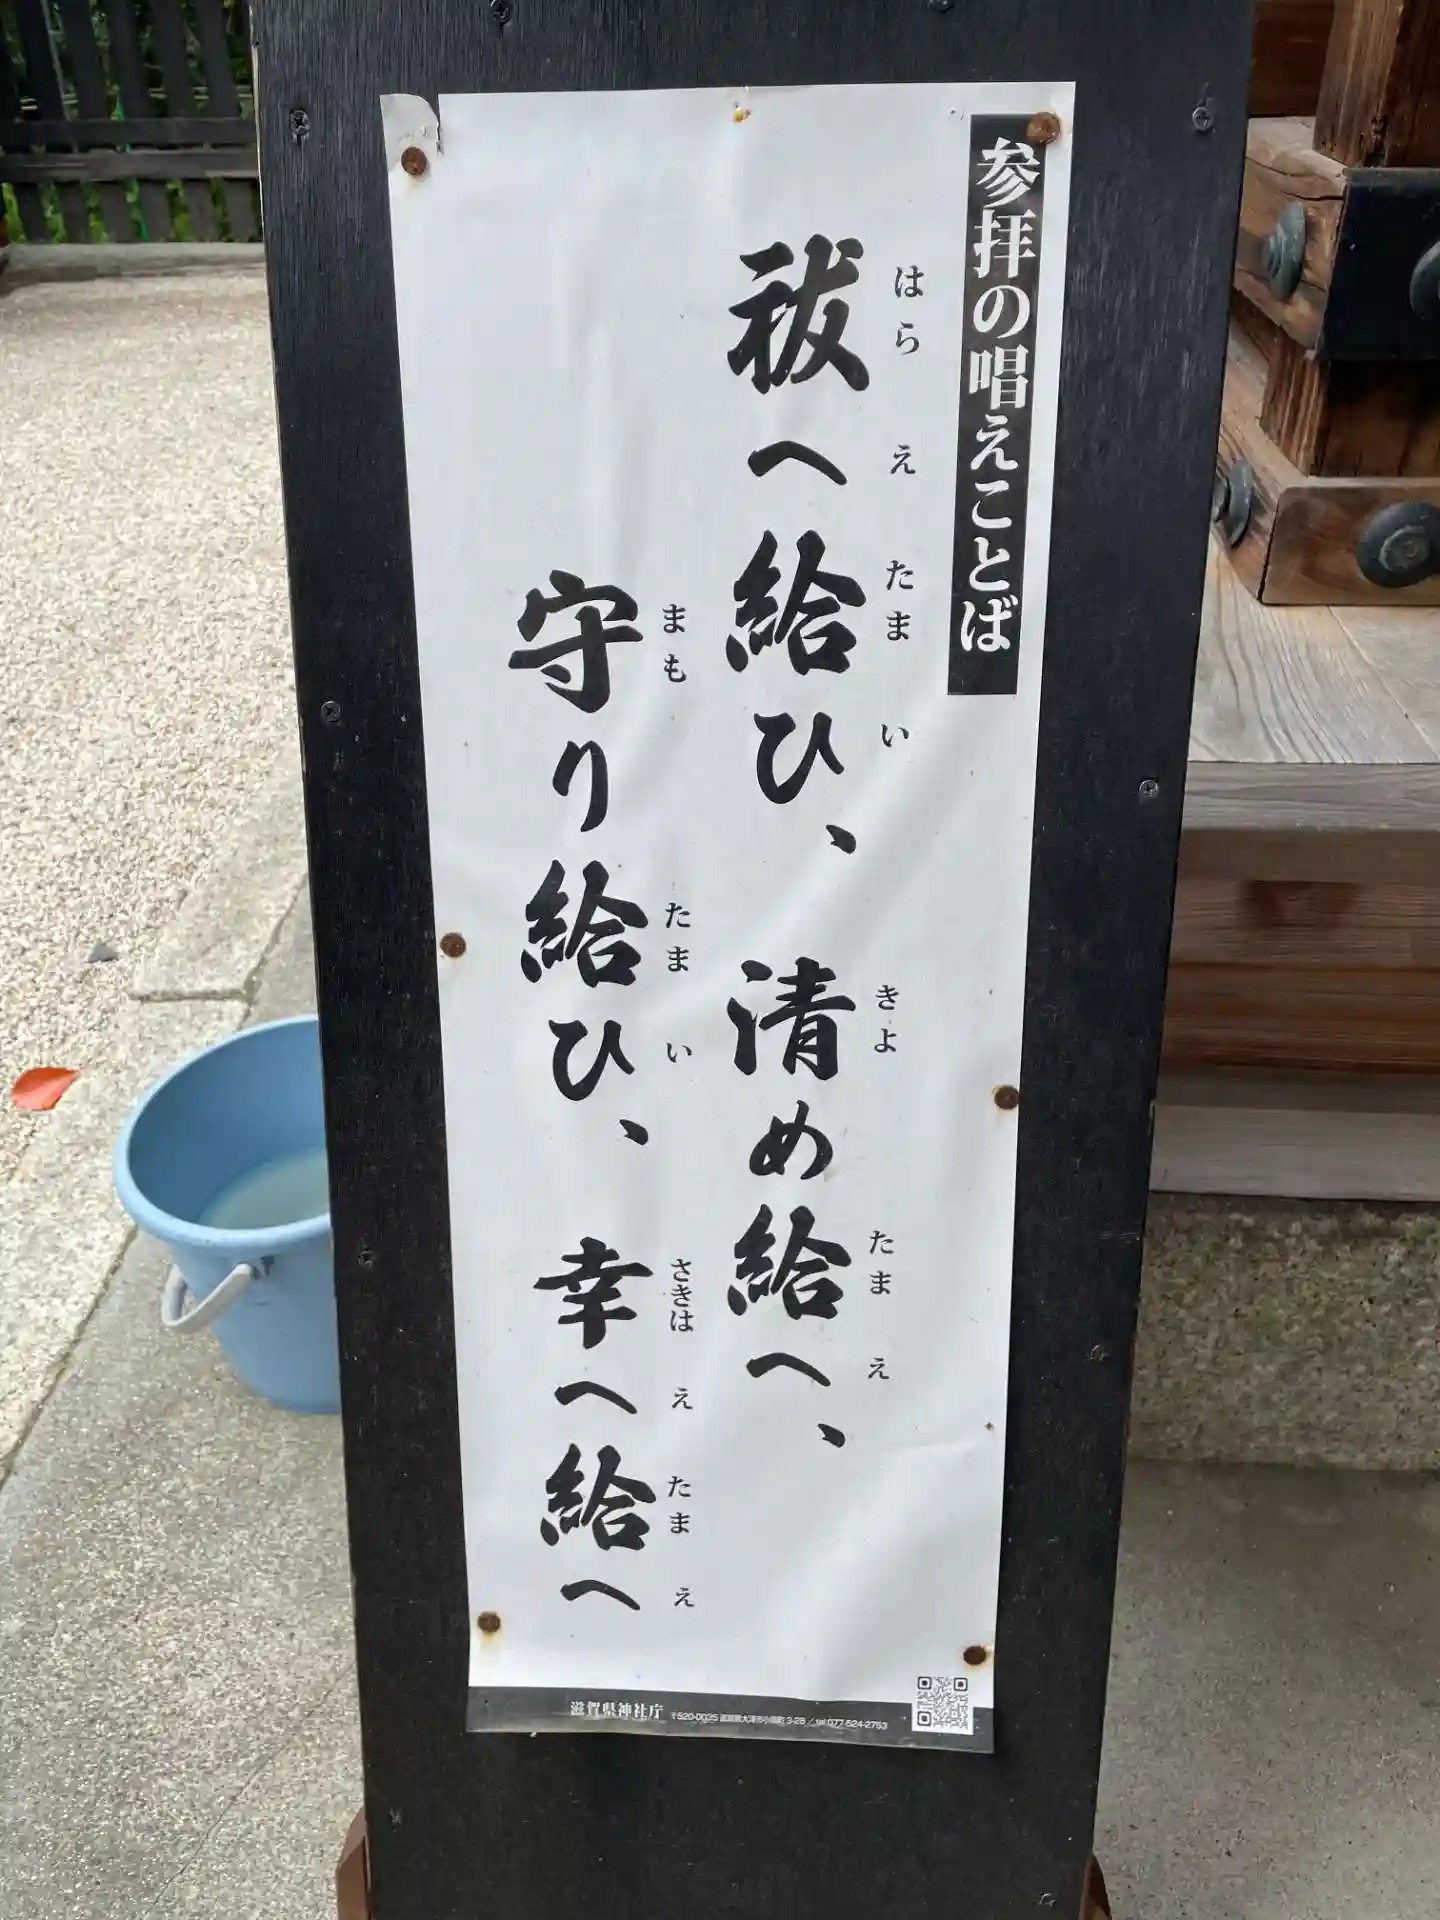 参拝の唱えことば
祓へ給ひ、清め給へ、
はらえたまいきよたまえ
守り給ひ、幸へ給へ
まもたまいさきはえたまえ
滋賀県神社庁 〒520-0035 滋賀県大津市小関町3-26／tel 077-524-2753